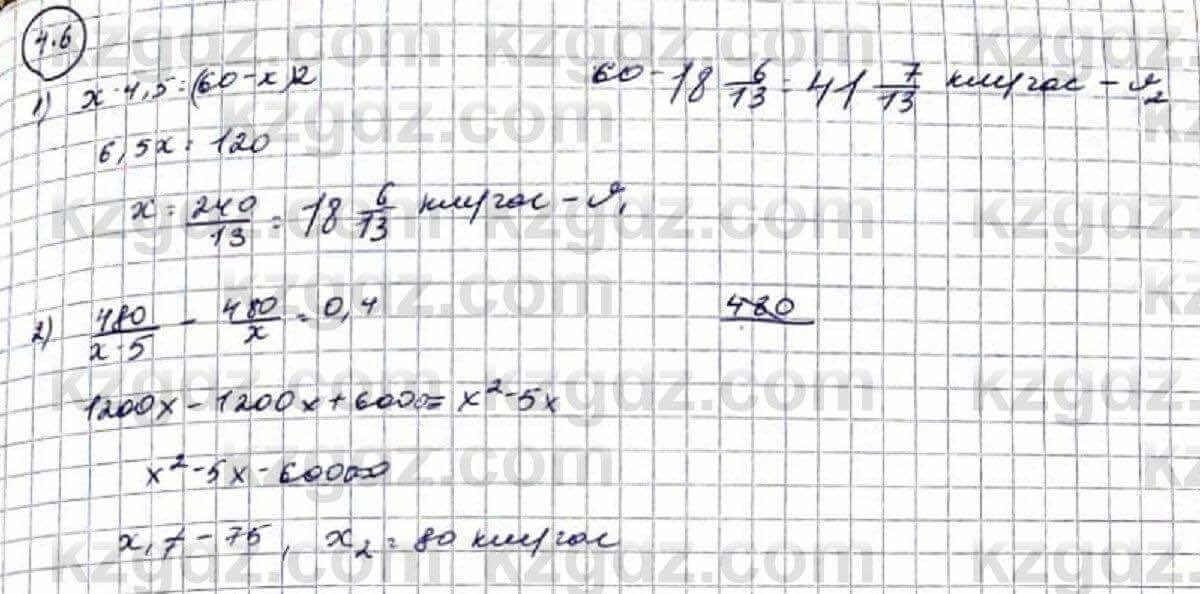 4.6
1) x · 4,5 = (60 - x)2
6,5x = 120
x = 240/13 = 18 6/13 км/час - v₁
60 - 18 6/13 = 41 7/13 км/час - v₂
2) 480/(x-5) - 480/x = 0,4
480
1200x - 1200x + 6000 = x² - 5x
x² - 5x - 6000=0
x₁ = -75, x₂ = 80 км/час
kzgdz.com